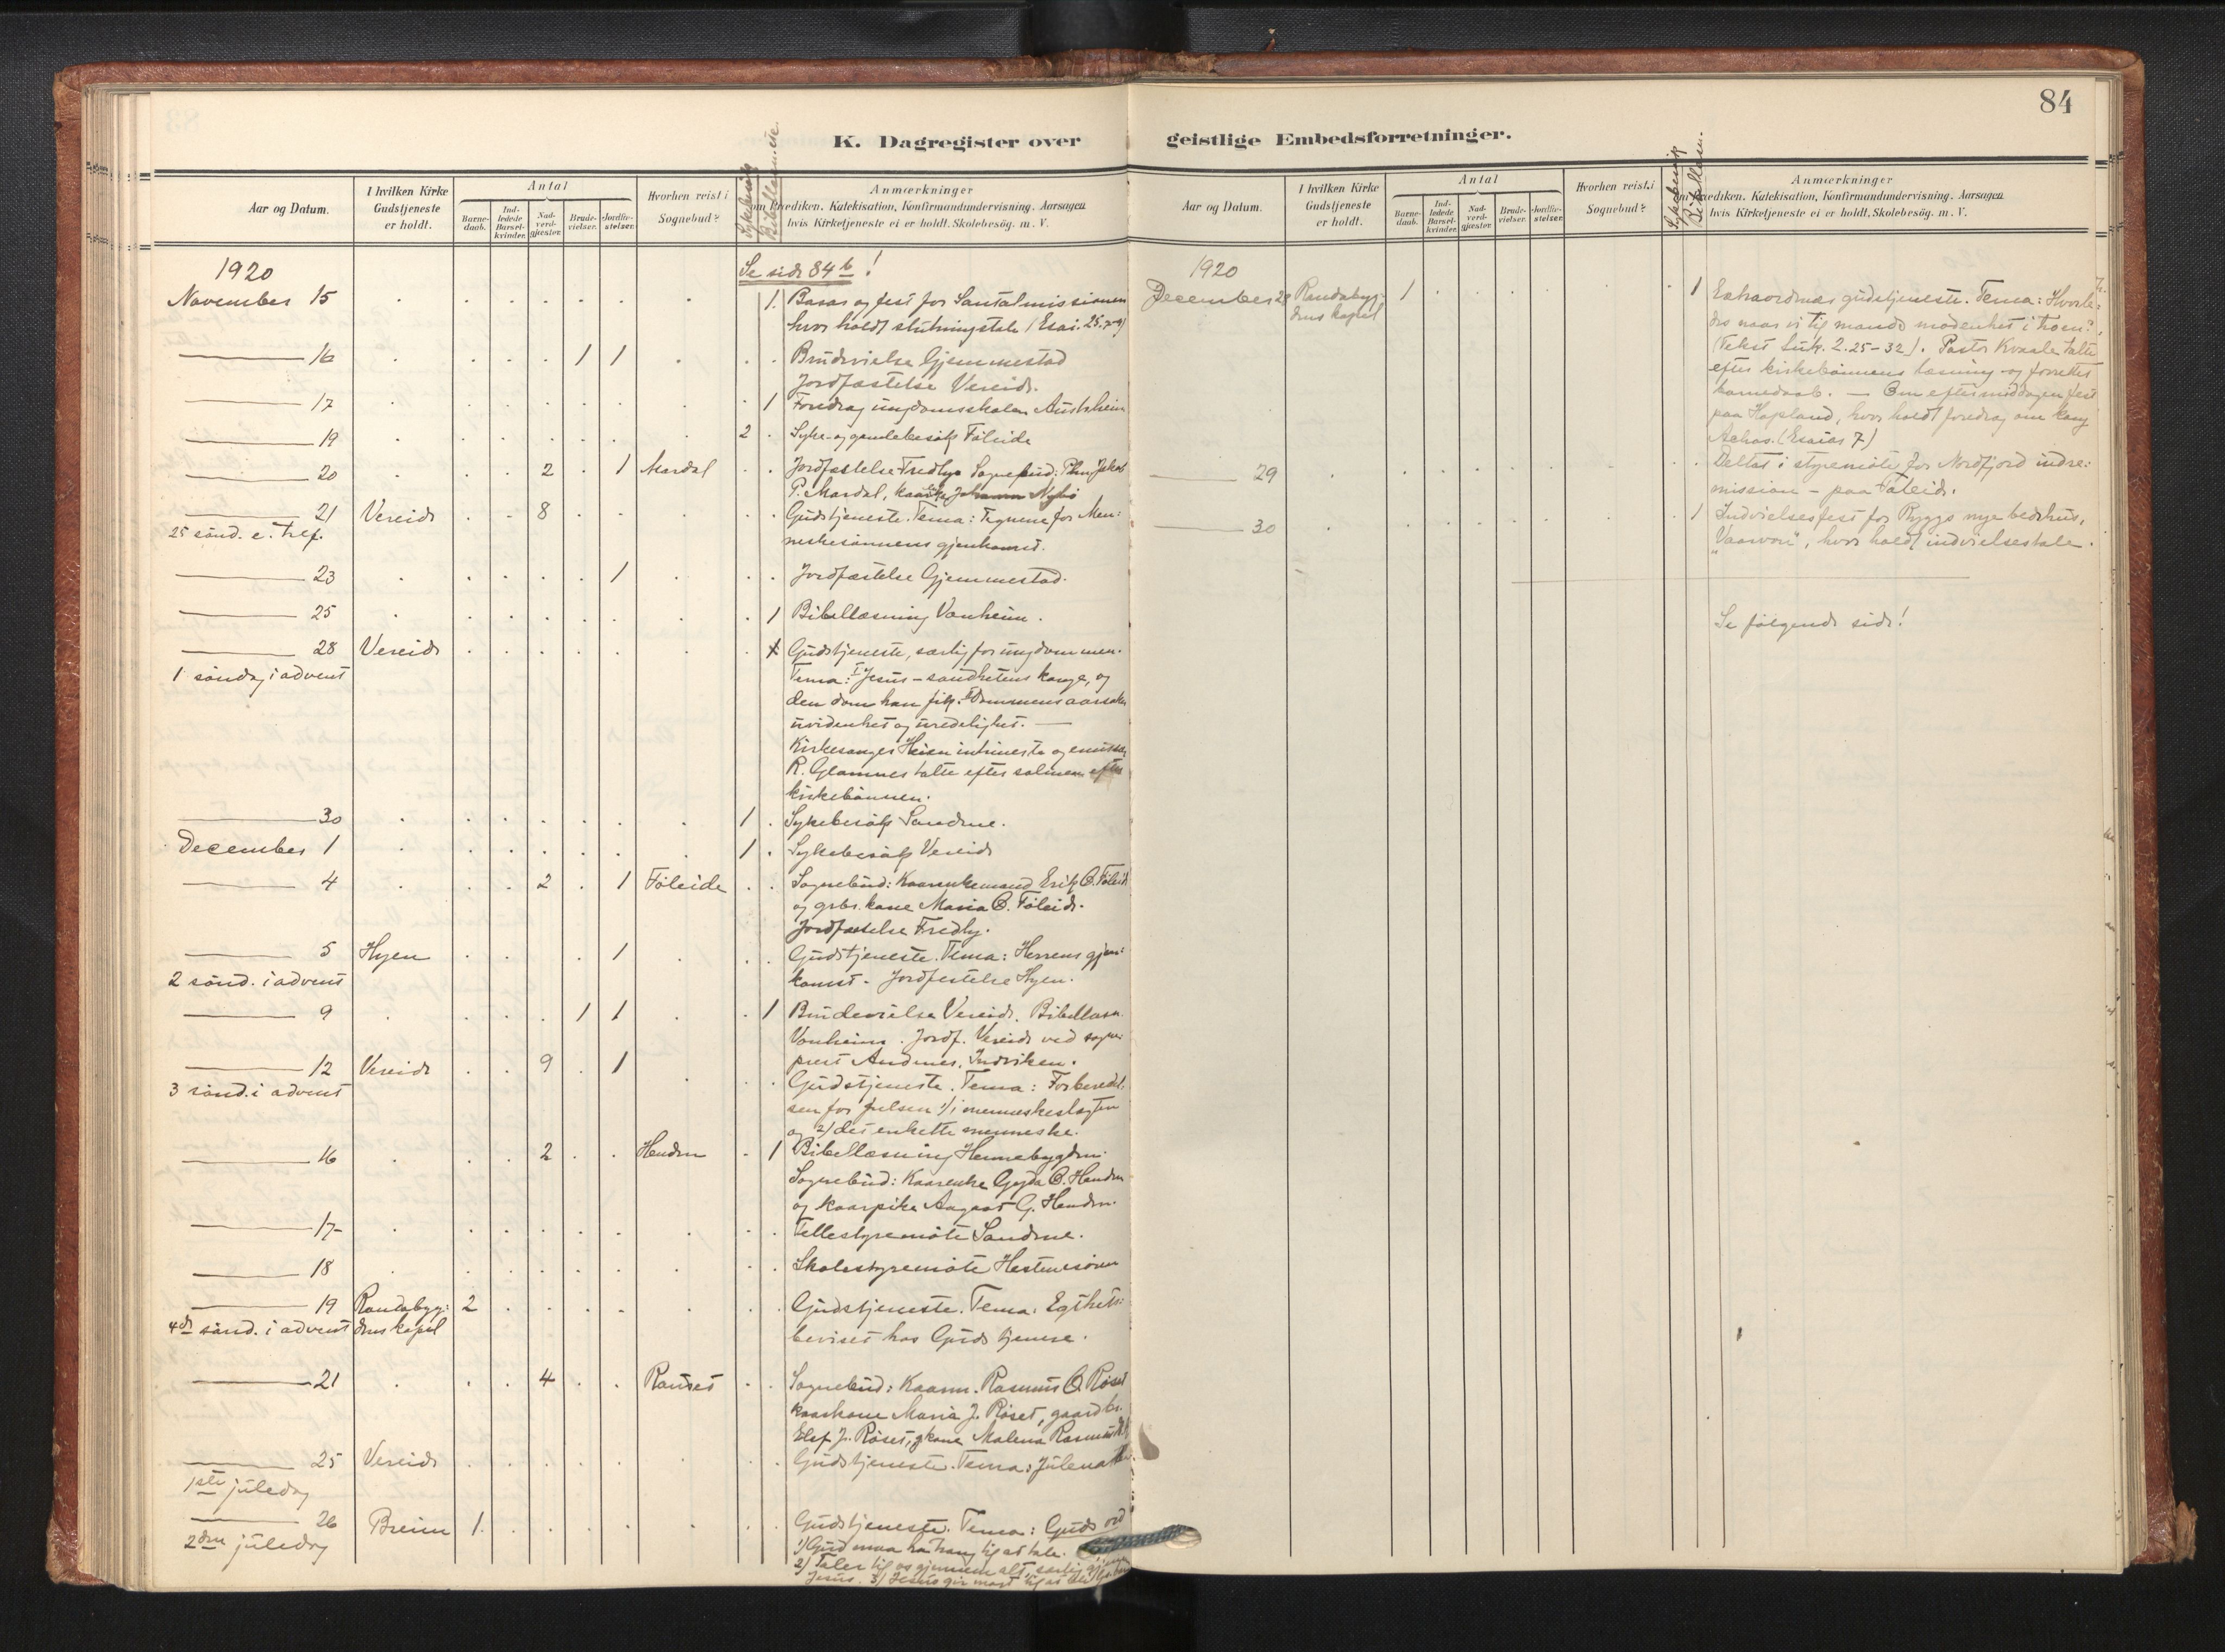 84
K. Dagregister over geistlige Embedsforretninger.
Aar og Datum.
I hvilken Kirke Gudstjeneste er holdt.
Antal
Barne-daab.
Ind-ledede Barsel-kvinder.
Nad-verd-gjæster.
Brude-vielser.
Jordfæ-stelser.
Hvorhen reist i Sognebud?
Sykebesök
Bibellæsn.
Anmærkninger
om Prædiken. Katekisation, Konfirmandundervisning. Aarsagen
hvis Kirketjeneste ei er holdt. Skolebesög. m. V.
1920
Se side 84 b!
November 15 1 Basar og fest for Santalmissionen
hvor holdt slutningstale (Esai. 25.7-9)
16 1 1 Brudevielse Gjemmestad
Jordfæstelse Vereide.
17 1 Foredrag ungdomsskolen Austrheim
19 2 Syke- og gamlebesök Föleide
20 2 1 Mardal Jordfæstelse Fredly. Sognebud: Jakob
P. Mardal, Nybö
21 Vereide 8 Gudstjeneste. Tema: Tegnene for Men:
25 sönd. e. tref. neskesönnens gjenkomst.
23 1 Jordfæstelse Gjemmestad.
25 1 Bibellæsning Vonheim.
28 Vereide Gudstjeneste, særlig for ungdommen.
1 söndag i advent Tema: I Jesus – sandhetens konge, og
den dom han fik. II Dommens aarsaker
uvidenhet og uredelighet. —
Kirkesanger Heien intimerte og emissær
R. Glomnes talte efter salmen efter
kirkebönnen.
30 1 Sykebesök Sandene.
December 1 1 Sykebesök Vereide
4 2 1 Föleide Sognebud: Kaarenkemand Erik O. Föleide
og gbr. kone Maria O. Föleide.
Jordfæstelse Fredly.
5 Hyen 1 Gudstjeneste. Tema: Herrens gjen:
2 sönd. i advent komst. Jordfæstelse Hyen.
9 1 1 1 Brudevielse Vereide. Bibellæsn.
Vonheim. Jordf. Vereide ved sogne:
prest Andenes, Indviken.
12 Vereide 9 1 Gudstjeneste. Tema: Forberedel:
3 sönd. i advent sen for julen 1/ i menneskeslegten
og 2/ det enkelte menneske.
16 2 Henden 1 Bibellæsning Hennebygden.
Sognebud: Kaarenke Gyda O. Henden
og kaarpike Aagaat G. Henden.
17 Fellesstyremöte Sandene.
18 Skolestyremöte Hestenesören
19 Randabyg: 2 Gudstjeneste. Tema: Egthets:
4de sönd. i advent dens kapel beviset hos Guds tjenere.
21 4 Rauset Sognebud: Kaarm. Rasmus O. Röset
kaarkone Maria J. Röset, gaardbr.
Elef J. Röset, g.kone Malena
25 Vereide Gudstjeneste. Tema:
1ste juledag
26 Breim 1 Gudstjeneste. Tema: Guds ord
2den juledag 1) Gud maa ha trang til at tale.
2) Taler til os gjennem alt, særlig gjennem
Jesus. 3) Jesus gir magt til at
Aar og Datum.
I hvilken Kirke Gudstjeneste er holdt.
Antal
Barne-daab.
Ind-ledede Barsel-kvinder.
Nad-verd-gjæster.
Brude-vielser.
Jordfæ-stelser.
Hvorhen reist i Sognebud?
Sykebesök
Bibellæsn.
Anmærkninger
om Prædiken. Katekisation, Konfirmandundervisning. Aarsagen
hvis Kirketjeneste ei er holdt. Skolebesög. m. V.
1920
December 28 Randabyg: 1 1 Extraordinær gudstjeneste. Tema: Hvorle:
dens kapel des naar vi til mands modenhet i troen?
(Tekst Luk. 2.25-32). Pastor Kvaale talte
efter kirkebönnens læsning og forrettet
barnedaab. — Om eftermiddagen fest
paa Hopland, hvor holdt foredrag om kong
Achas. (Esaias 7)
29 Deltat i styremöte for Nordfjord indre:
mission – paa Föleide.
30 1 Indvielsesfest for Ryggs nye bedehus,
"Vaarvon", hvor holdt indvielsestale.
Se følgende side!